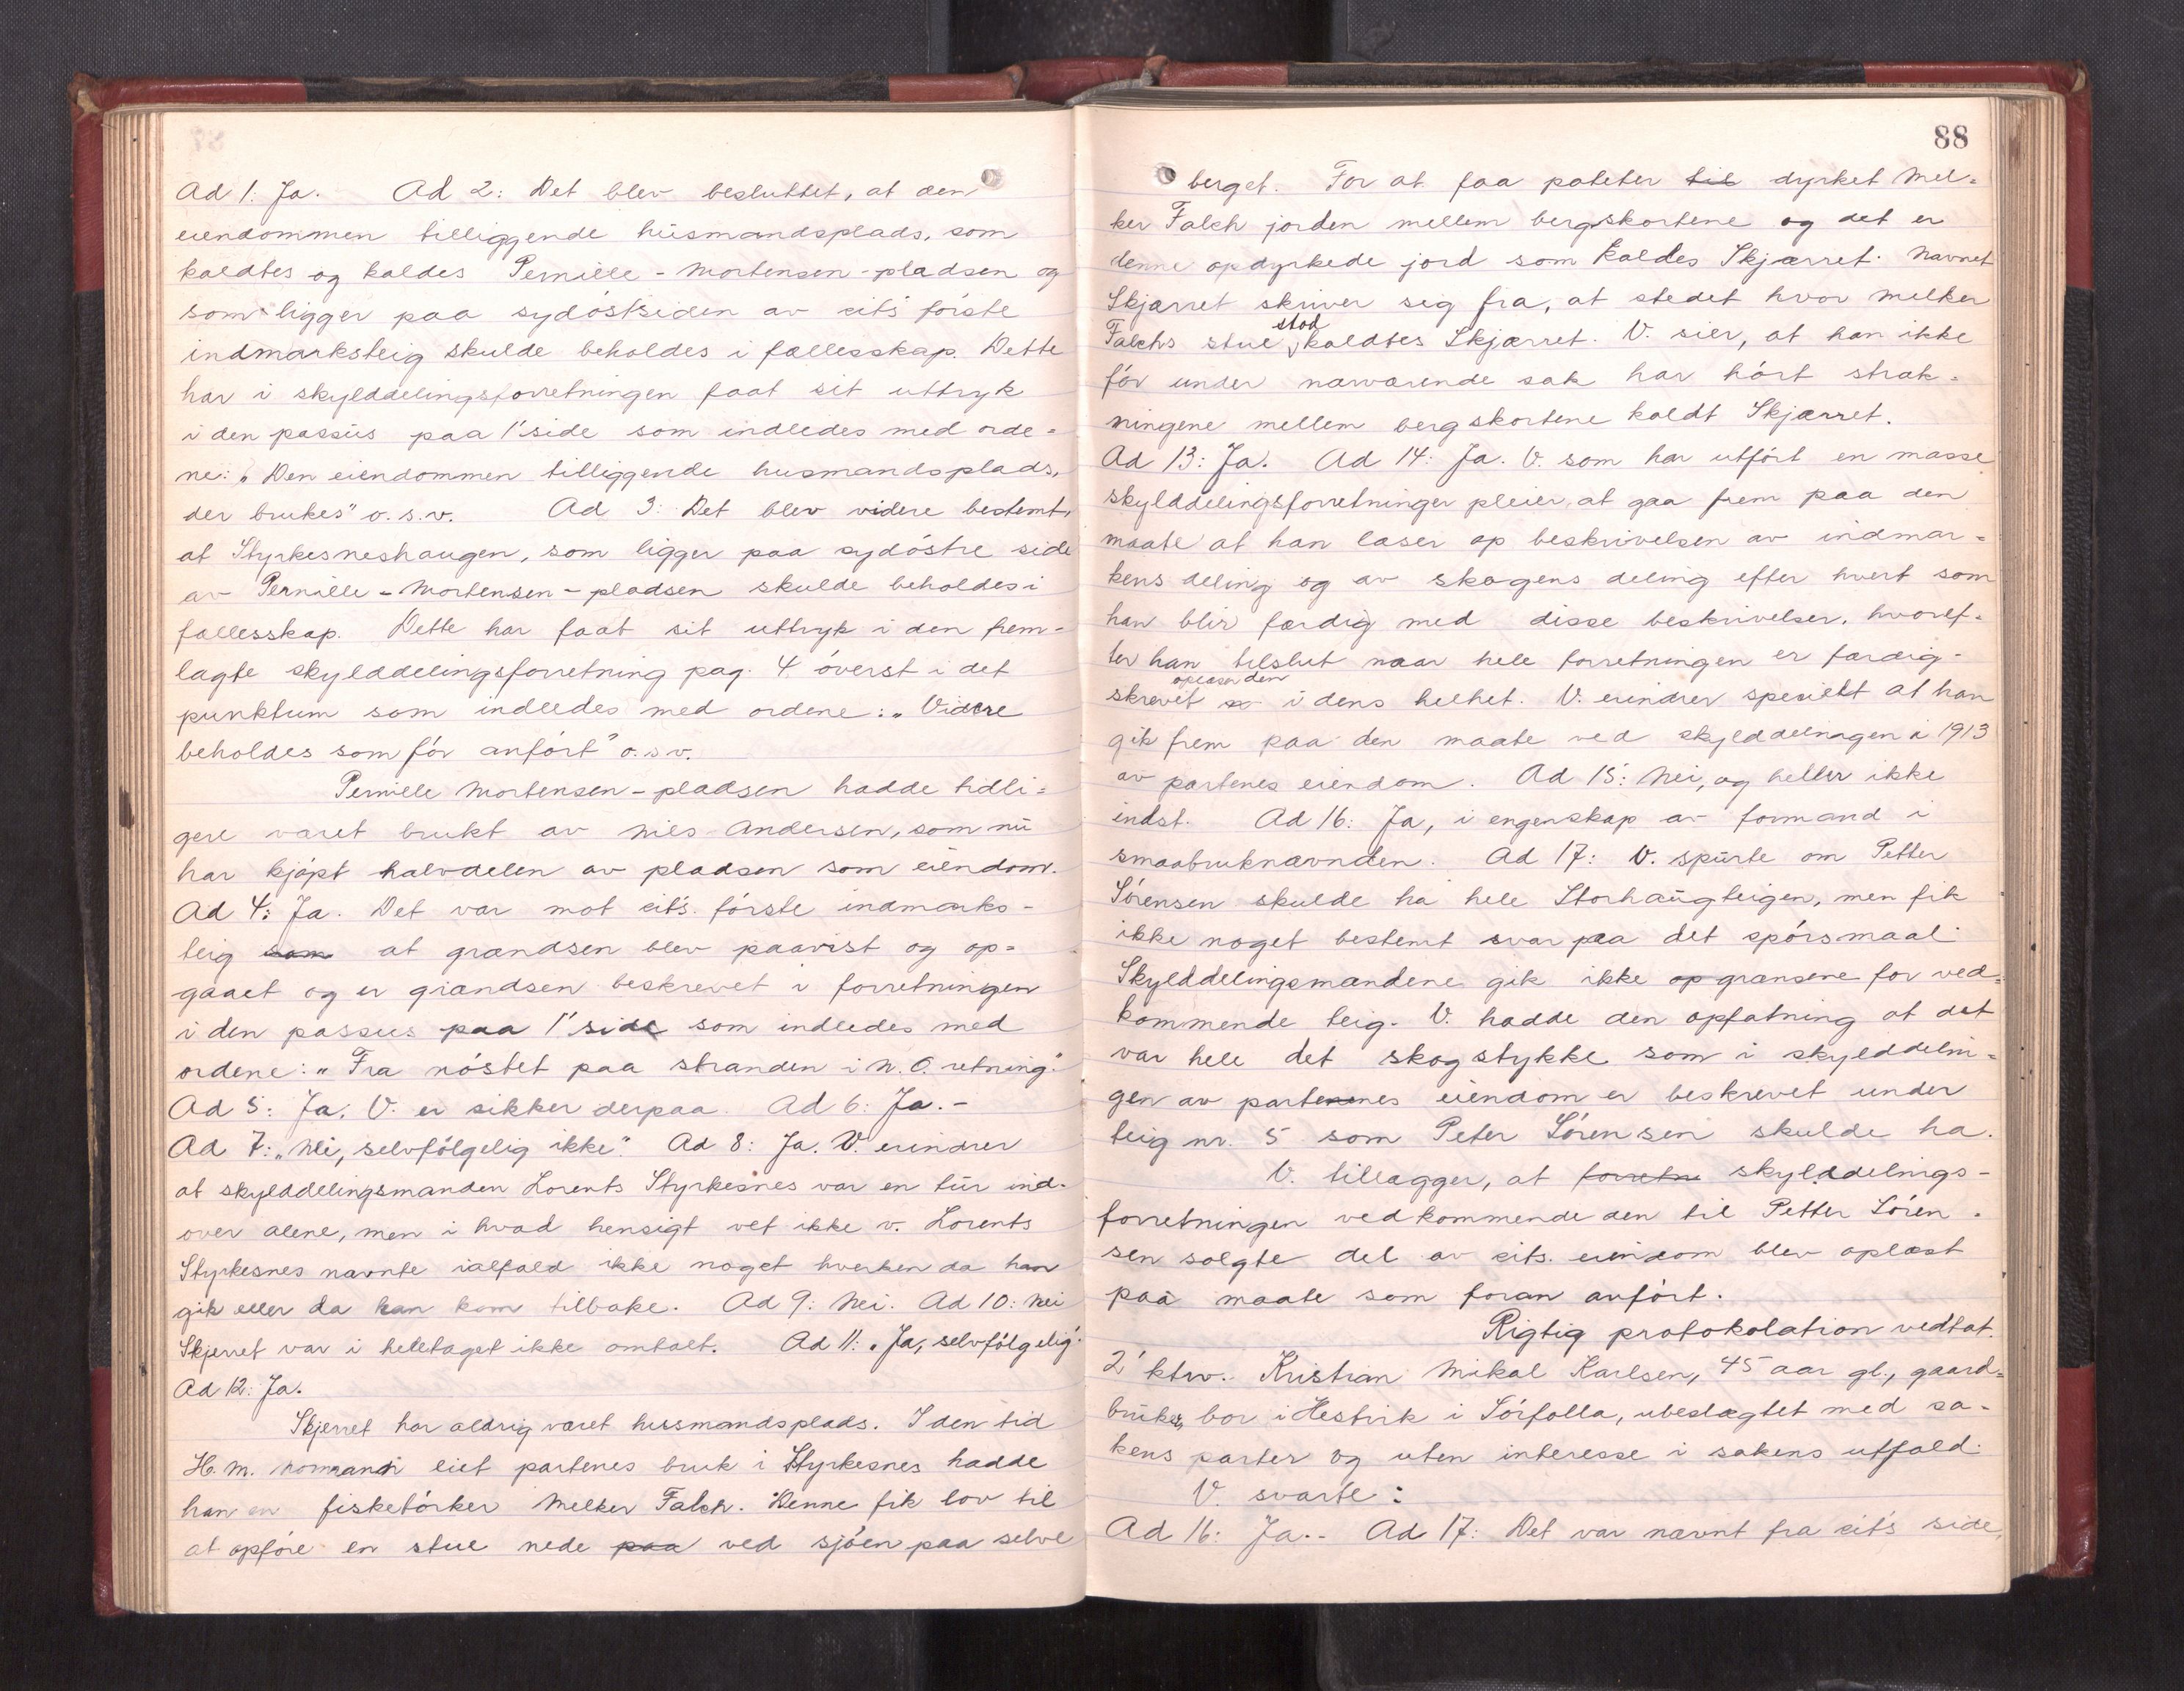 Ad 1: Ja. Ad 2: Det blev besluttet, at den
eiendommen tilliggende husmandsplads, som
kaldtes og kaldes Pernille-Mortensen-pladsen og
som ligger paa sydöstsiden av cit's förste
indmarksteig skulde beholdes i fællesskap. Dette
har i skylddelingsforretningen faat sit uttryk
i den passus paa 1' side som indledes med orde=
ne: „Den eiendommen tilliggende husmandsplads,
der brukes" o.s.v. Ad 3: Det blev videre bestemt,
at Styrkesneshaugen, som ligger paa sydöstre side
av Pernille-Mortensen-pladsen skulde beholdes i
fællesskap. Dette har faat sit uttryk i den frem-
lagte skylddelingsforretning pag. 4 överst i det
punktum som indledes med ordene: „Videre
beholdes som för anfört" o.s.v.
Pernille Mortensen-pladsen hadde tidli=
gere været brukt av Nils Andersen, som nu
har kjöpt halvdelen av pladsen som eiendom.
Ad 4: Ja. Det var mot cit's. förste indmarks-
teig som at grændsen blev paavist og op=
gaaet og er grændsen beskrevet i forretningen
i den passus paa 1' side som indledes med
ordene: „Fra nöstet paa stranden i N.O. retning."
Ad 5: Ja, V. er sikker derpaa. Ad 6: Ja.-
Ad 7: „Nei, selvfölgelig ikke". Ad 8: Ja. V. erindrer
at skylddelingsmanden Lorents Styrkesnes var en tur ind-
over alene, men i hvad hensigt vet ikke v. Lorents
Styrkesnes nævnte ialfald ikke noget hverken da han
gik eller da han kom tilbake. Ad 9: Nei. Ad 10: Nei
Skjerret var i heletaget ikke omtalt. Ad 11: „Ja, selvfölgelig".
Ad 12: Ja.
Skjerret har aldrig været husmandsplads. I den tid
H. M. Normann eiet partenes bruk i Styrkesnes hadde
han en fisketörker Melker Falch. Denne fik lov til
at opföre en stue nede paa ved sjöen paa selve
88
berget. For at faa poteter til dyrket Mel=
ker Falch jorden mellem bergskortene og det er
denne opdyrkede jord som kaldes Skjærret. Navnet
Skjærret skriver sig fra, at stedet hvor Melker
Falchs stue stod kaldtes Skjærret. V. sier, at han ikke
för under nærværende sak har hört stræk=
ningene mellem bergskortene kaldt Skjærret.
Ad 13: Ja. Ad 14: Ja. V. som har utfört en masse
skylddelingsforretninger pleier, at gaa frem paa den
maate at han læser op beskrivelsen av indmar=
kens deling og av skogens deling efter hvert som
han blir færdig med disse beskrivelser, hvoref-
ter han tilslut naar hele forretningen er færdig-
skrevet oplæser den i dens helhet. V. erindrer specielt at han
gik frem paa den maate ved skylddelingen i 1913
av partenes eiendom. Ad 15: Nei, og heller ikke
indst. Ad 16: Ja, i egenskap av formand i
smaabruknævnden. Ad 17: V. spurte om Petter
Sörensen skulde ha hele Storhaugteigen, men fik
ikke noget bestemt svar paa det spörsmaal.
Skylddelingsmændene gik ikke op grænsene for ved=
kommende teig. V. hadde den opfatning at det
var hele det skogstykke som i skylddelin=
gen av partenes eiendom er beskrevet under
teig nr. 5 som Peter Sörensen skulde ha.
V. tillægger, at forretni skylddelings-
forretningen vedkommende den til Petter Sören-
sen solgte del av cits. eiendom blev oplæst
paa maate som foran anfört.
Rigtig protokolation vedtat.
2' ktrv. Kristian Mikal Karlsen, 45 aar gl., gaard=
bruker, bor i Hestvik i Sörfolla, ubeslægtet med sa-
kens parter og uten interesse i sakens utfald.
V. svarte:
Ad 16: Ja.- Ad 17: Det var nævnt fra cit's side,